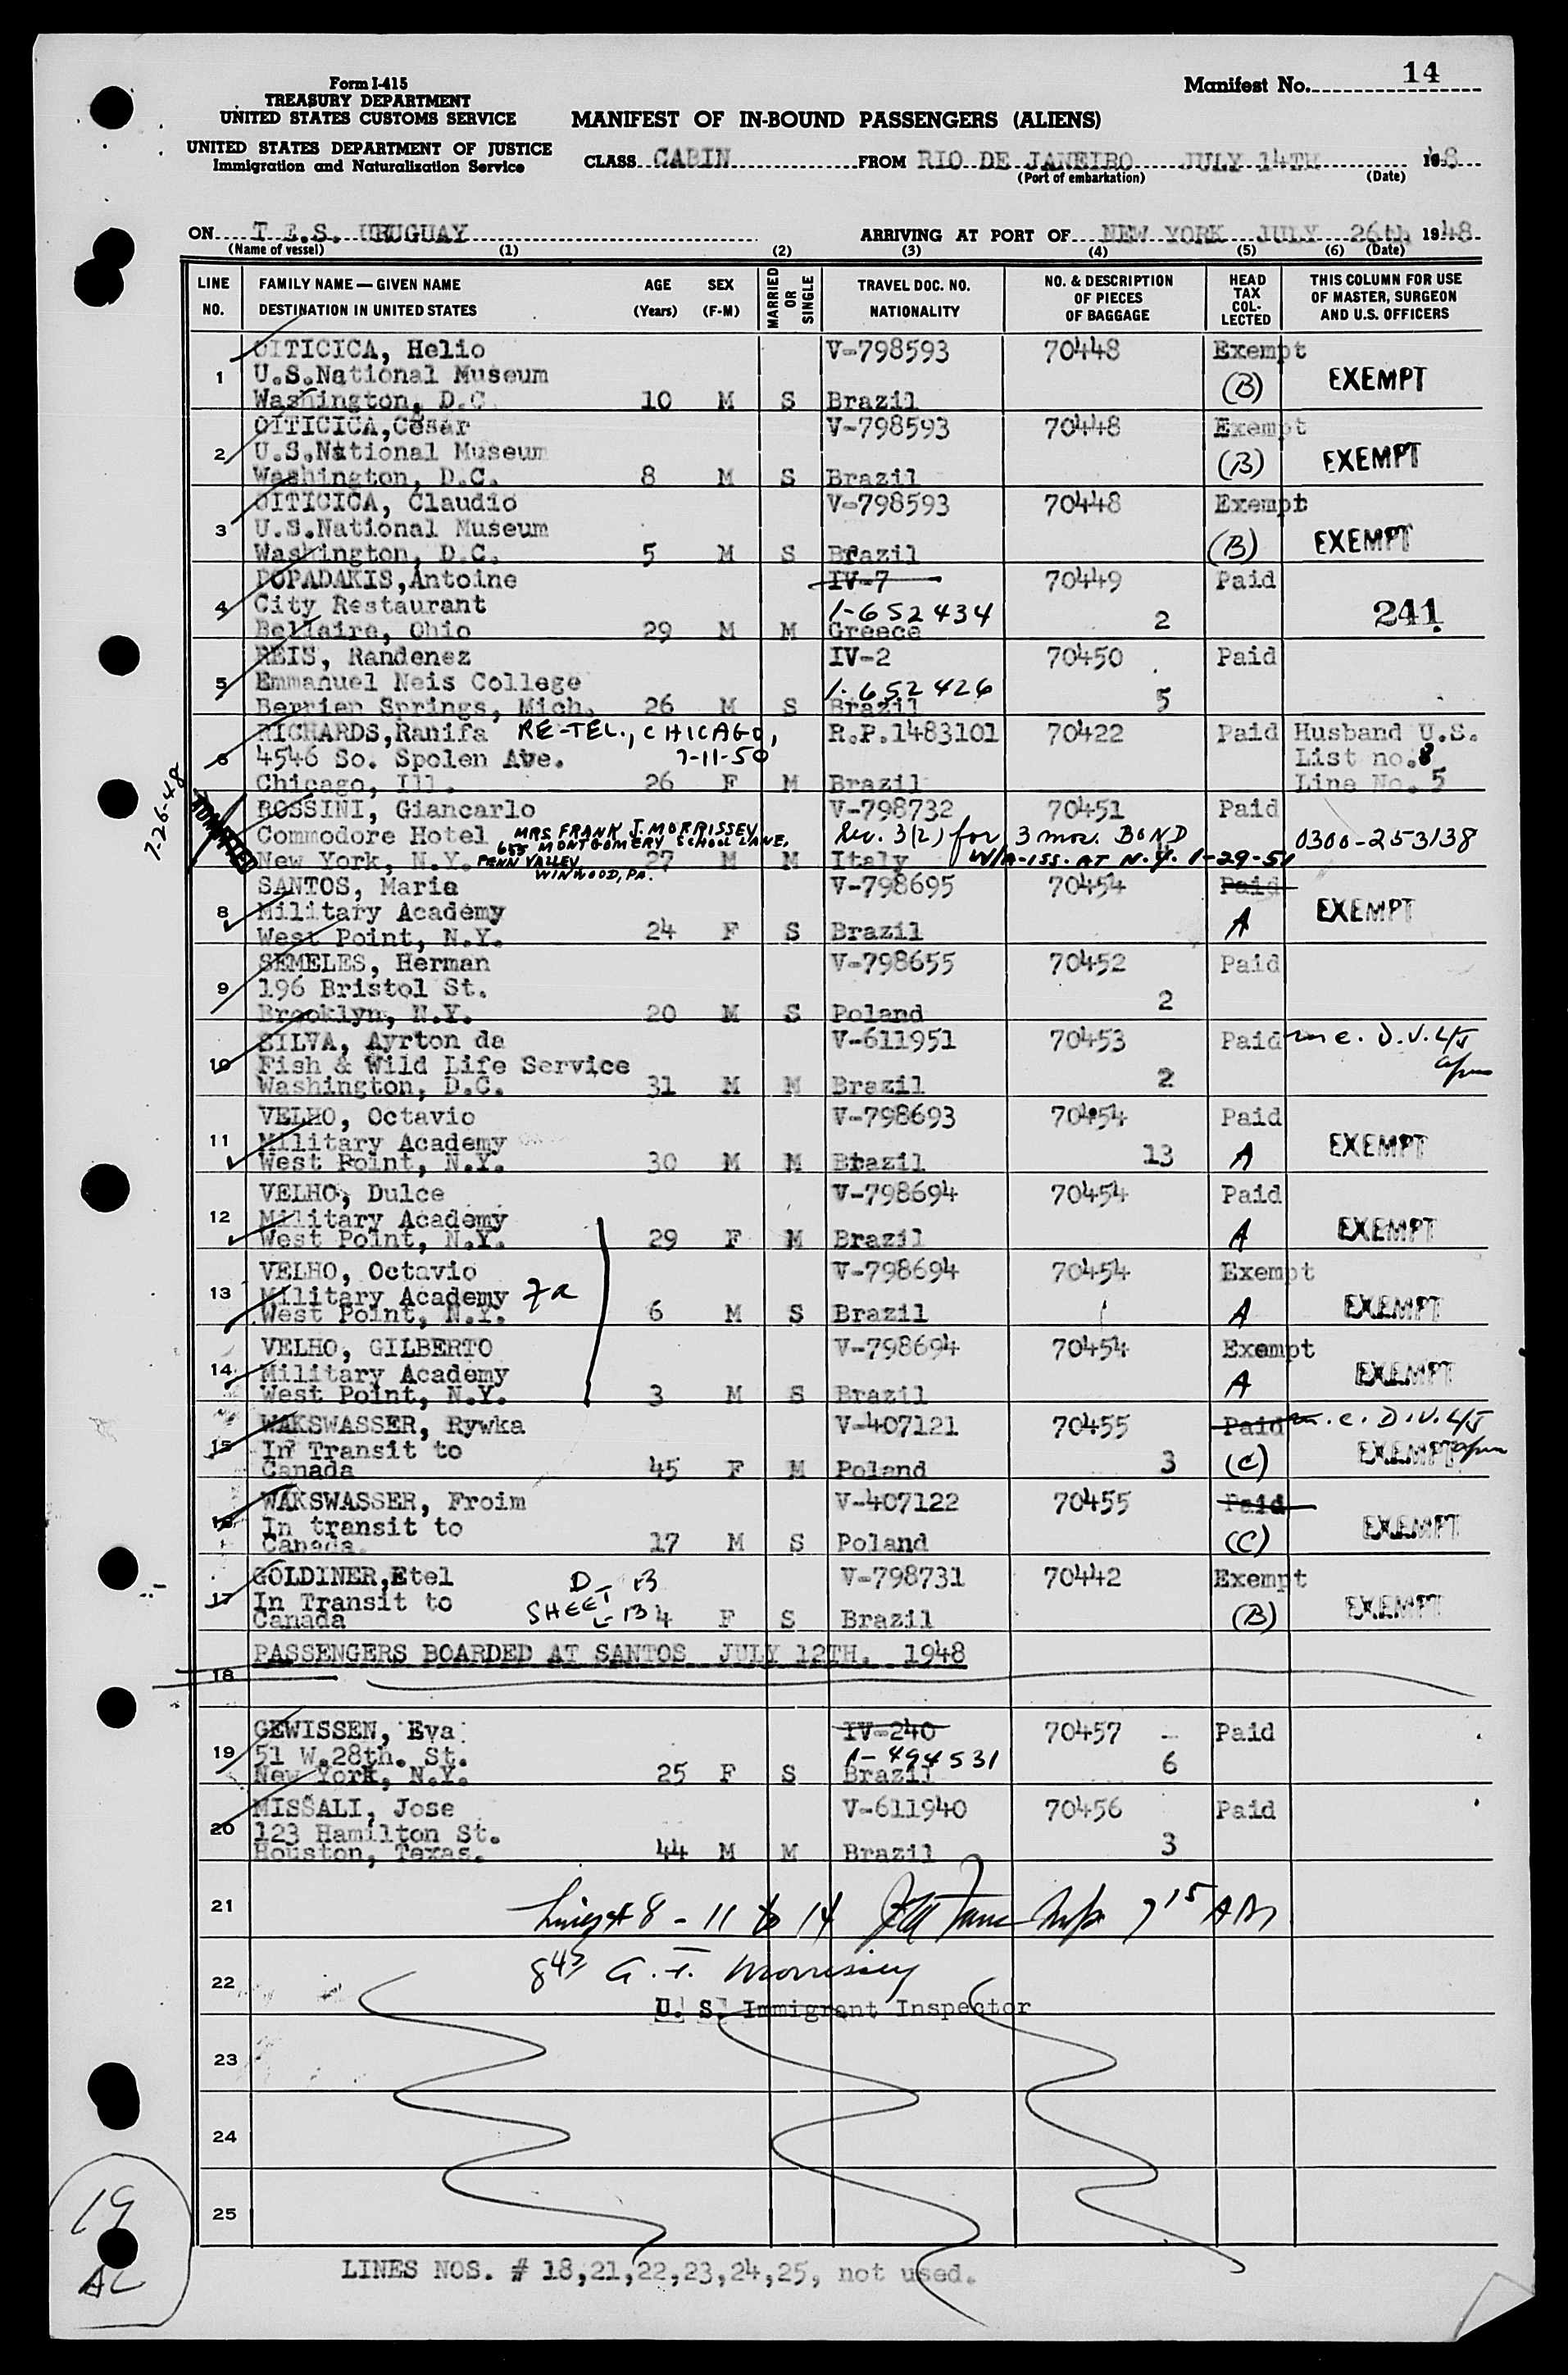 Form I-415
TREASURY DEPARTMENT
UNITED STATES CUSTOMS SERVICE
UNITED STATES DEPARTMENT OF JUSTICE
Immigration and Naturalization Service
Manifest No. 14
MANIFEST OF IN-BOUND PASSENGERS (ALIENS)
CLASS CABIN FROM RIO DE JANEIRO JULY 14TH 1948
(Port of embarkation) (Date)
ON T.E.S. URUGUAY ARRIVING AT PORT OF NEW YORK JULY 26th 1948
(Name of vessel) (1) (2) (3) (4) (5) (6) (Date)
LINE NO. FAMILY NAME — GIVEN NAME DESTINATION IN UNITED STATES AGE (Years) SEX (F-M) MARRIED OR SINGLE TRAVEL DOC. NO. NATIONALITY NO. & DESCRIPTION OF PIECES OF BAGGAGE HEAD TAX COLLECTED THIS COLUMN FOR USE OF MASTER, SURGEON AND U.S. OFFICERS
OITICICA, Helio V-798593 70448 Exempt
1 U.S.National Museum (B) EXEMPT
Washington, D.C. 10 M S Brazil
OITICICA,Cesar V-798593 70448 Exempt
2 U.S.National Museum (B) EXEMPT
Washington, D.C. 8 M S Brazil
OITICICA, Claudio V-798593 70448 Exempt
3 U.S.National Museum (B) EXEMPT
Washington, D.C. 5 M S Brazil
POPADAKIS,Antoine IV-7 70449 Paid
4 City Restaurant 1-652434 2 241
Bellaire, Ohio 29 M M Greece
REIS, Randenez IV-2 70450 Paid
5 Emmanuel Neis College 1-652426 5
Berrien Springs, Mich. 26 M S Brazil
RICHARDS,Ranifa RE-TEL., CHICAGO, R.P.1483101 70422 Paid Husband U.S.
6 4546 So. Spolen Ave. 7-11-50 List no.8
Chicago, Ill. 26 F M Brazil Line No. 5
7-26-48
ROSSINI, Giancarlo V-798732 70451 Paid
Commodore Hotel MRS. FRANK J. MORRISSEY Sec. 3(2) for 3 mos. BOND 0300-253138
655 MONTGOMERY SCHOOL LANE,
New York, N.Y. PENN VALLEY 27 M M Italy W/A-ISS. AT N.Y. 1-29-51
WINWOOD, PA.
SANTOS, Maria V-798695 70454 Paid
8 Military Academy A EXEMPT
West Point, N.Y. 24 F S Brazil
SEMELES, Herman V-798655 70452 Paid
9 196 Bristol St. 2
Brooklyn, N.Y. 20 M S Poland
SILVA, Ayrton da V-611951 70453 Paid
10 Fish & Wild Life Service 2
Washington, D.C. 31 M M Brazil
VELHO, Octavio V-798693 70454 Paid
11 Military Academy 13 A EXEMPT
West Point, N.Y. 30 M M Brazil
VELHO, Dulce V-798694 70454 Paid
12 Military Academy A EXEMPT
West Point, N.Y. 29 F M Brazil
VELHO, Octavio V-798694 70454 Exempt
13 Military Academy A EXEMPT
West Point, N.Y. 6 M S Brazil
VELHO, GILBERTO V-798694 70454 Exempt
14 Military Academy A EXEMPT
West Point, N.Y. 3 M S Brazil
WAKSWASSER, Rywka V-407121 70455 Paid
15 In Transit to 3 (C) EXEMPT
Canada 45 F M Poland
WAKSWASSER, Froim V-407122 70455 Paid
16 In transit to (C) EXEMPT
Canada. 17 M S Poland
GOLDINER,Etel V-798731 70442 Exempt
17 In Transit to SHEET 13 (B) EXEMPT
Canada L-13 4 F S Brazil
PASSENGERS BOARDED AT SANTOS JULY 12TH. 1948
18
GEWISSEN, Eva IV-240 70457 Paid
19 51 W.28th. St. 1-494531 6
New York, N.Y. 25 F S Brazil
MISSALI, Jose V-611940 70456 Paid
20 123 Hamilton St. 3
Houston, Texas. 44 M M Brazil
21 Lines # 8 - 11 to 14 7 15 AM
22 G. F. Morrissey
U. S. Immigrant Inspector
23
24
25
19
AC
LINES NOS. # 18,21,22,23,24,25, not used.